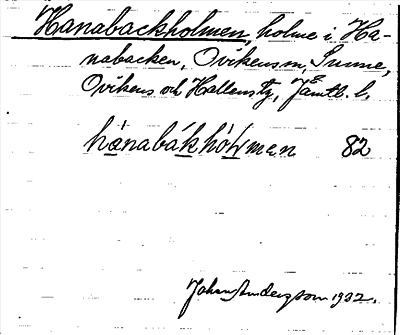 Hanabackholmen, holme i Ha-
nabacken, Ovikens sn, Sunne,
Ovikens och Hallens tg, Jämtl. l.
hanabákhólmen 82
Johan Anderzon 1932.